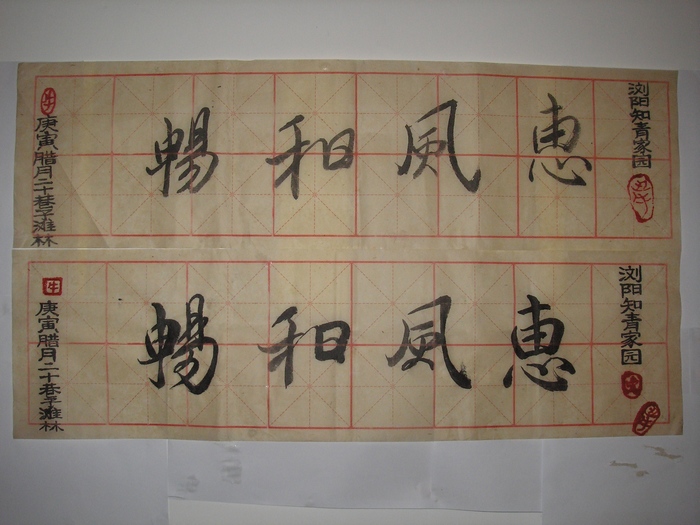 浏阳知青家园
惠風和暢
庚寅腊月二十巷子滩林
浏阳知青家园
惠風和暢
庚寅腊月二十巷子滩林